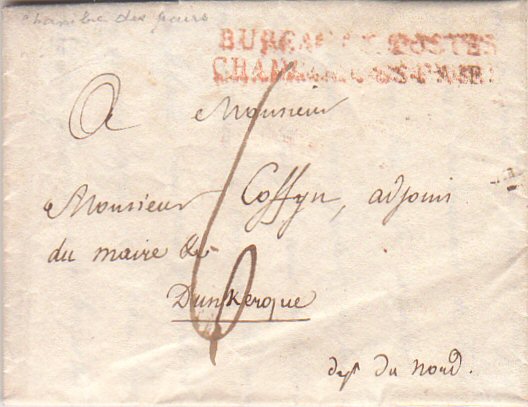 chambre des pairs
BUREAU DE POSTES
CHAMBRE DES PAIRS
A Monsieur
Monsieur Coffyn, adjoint
du maire de
Dunkerque
6
dept du nord.